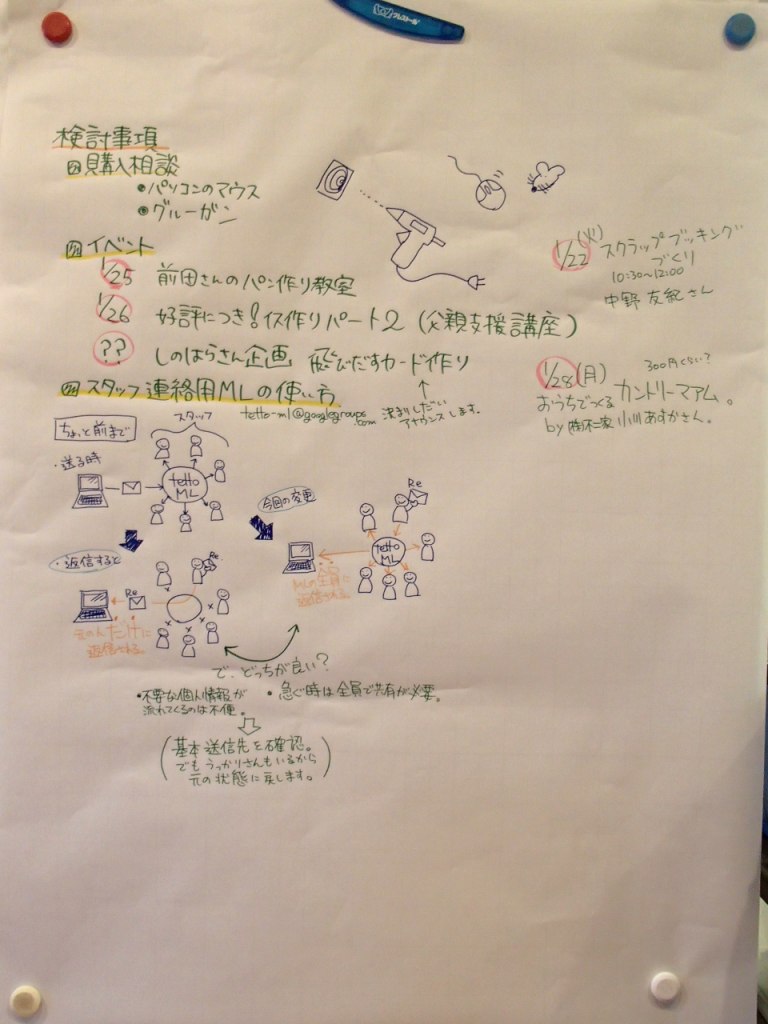 検討事項
購入相談
・パソコンのマウス
・グルーガン
イベント
1/25 前田さんのパン作り教室
1/26 好評につき!イス作りパート2 (父親支援講座)
?? しのはらさん企画 飛びだすカード作り
↑
決まりしだい
アナウンスします。
1/22 (火) スクラップブッキング
づくり
10:30~12:00
中野 友紀 さん
1/28 (月) カントリーマアム。
300円くらい?
おうちでつくる
by (株)不二家 小川 あすかさん。
スタッフ連絡用MLの使い方
tetto-ml@googlegroups.com
ちょっと前まで
スタッフ
・送る時
tetto
ML
・返信すると
Re
Re
元の人だけに
返信される
今回の変更
Re
tetto
ML
MLの全員に
返信される
で、どっちが良い?
・不要な個人情報が
流れてくるのは不便。
・急ぐ時は全員で共有が必要。
(基本送信先を確認。
でもうっかりさんもいるから
元の状態に戻します。)